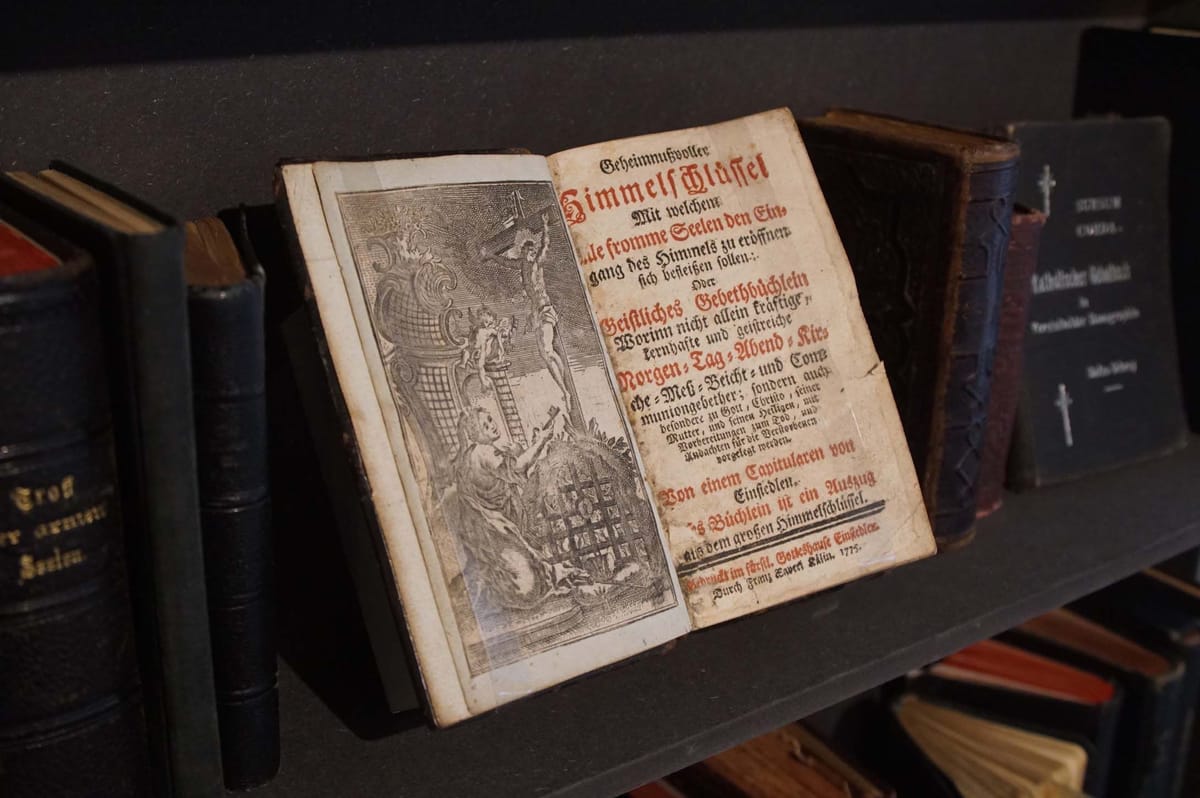 Trost
er armen
Seelen
Geheimnußvoller
Himmelschlüssel
Mit welchem
lle fromme Seelen den Ein-
gang des Himmels zu eröffnen
sich befleißen sollen:
Oder
Geistliches Gebethbüchlein
Worinn nicht allein kräftige,
kernhafte und geistreiche
Morgen-Tag-Abend-Kir-
che-Meß-Beicht-und Com-
muniongebether; sondern auch
besondere zu Gott, Christo, seiner
Mutter, und seinen Heiligen, mit
Vorbereitungen zum Tod, und
Andachten für die Verstorbenen
vorgelegt werden.
Von einem Capitularen von
Einsiedlen.
s Büchlein ist ein Auszug
aus dem großen Himmelschlüssel.
Gedruckt im fürstl. Gotteshause Einsiedlen
Durch Franz Xaveri Kälin. 1775.
SURSUM
CORDA.
Katholischer Gebetbuch
in
Stenographie